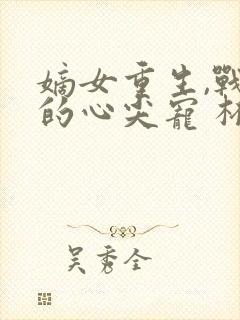 嫡女重生,戰
的心尖寵
吴秀全